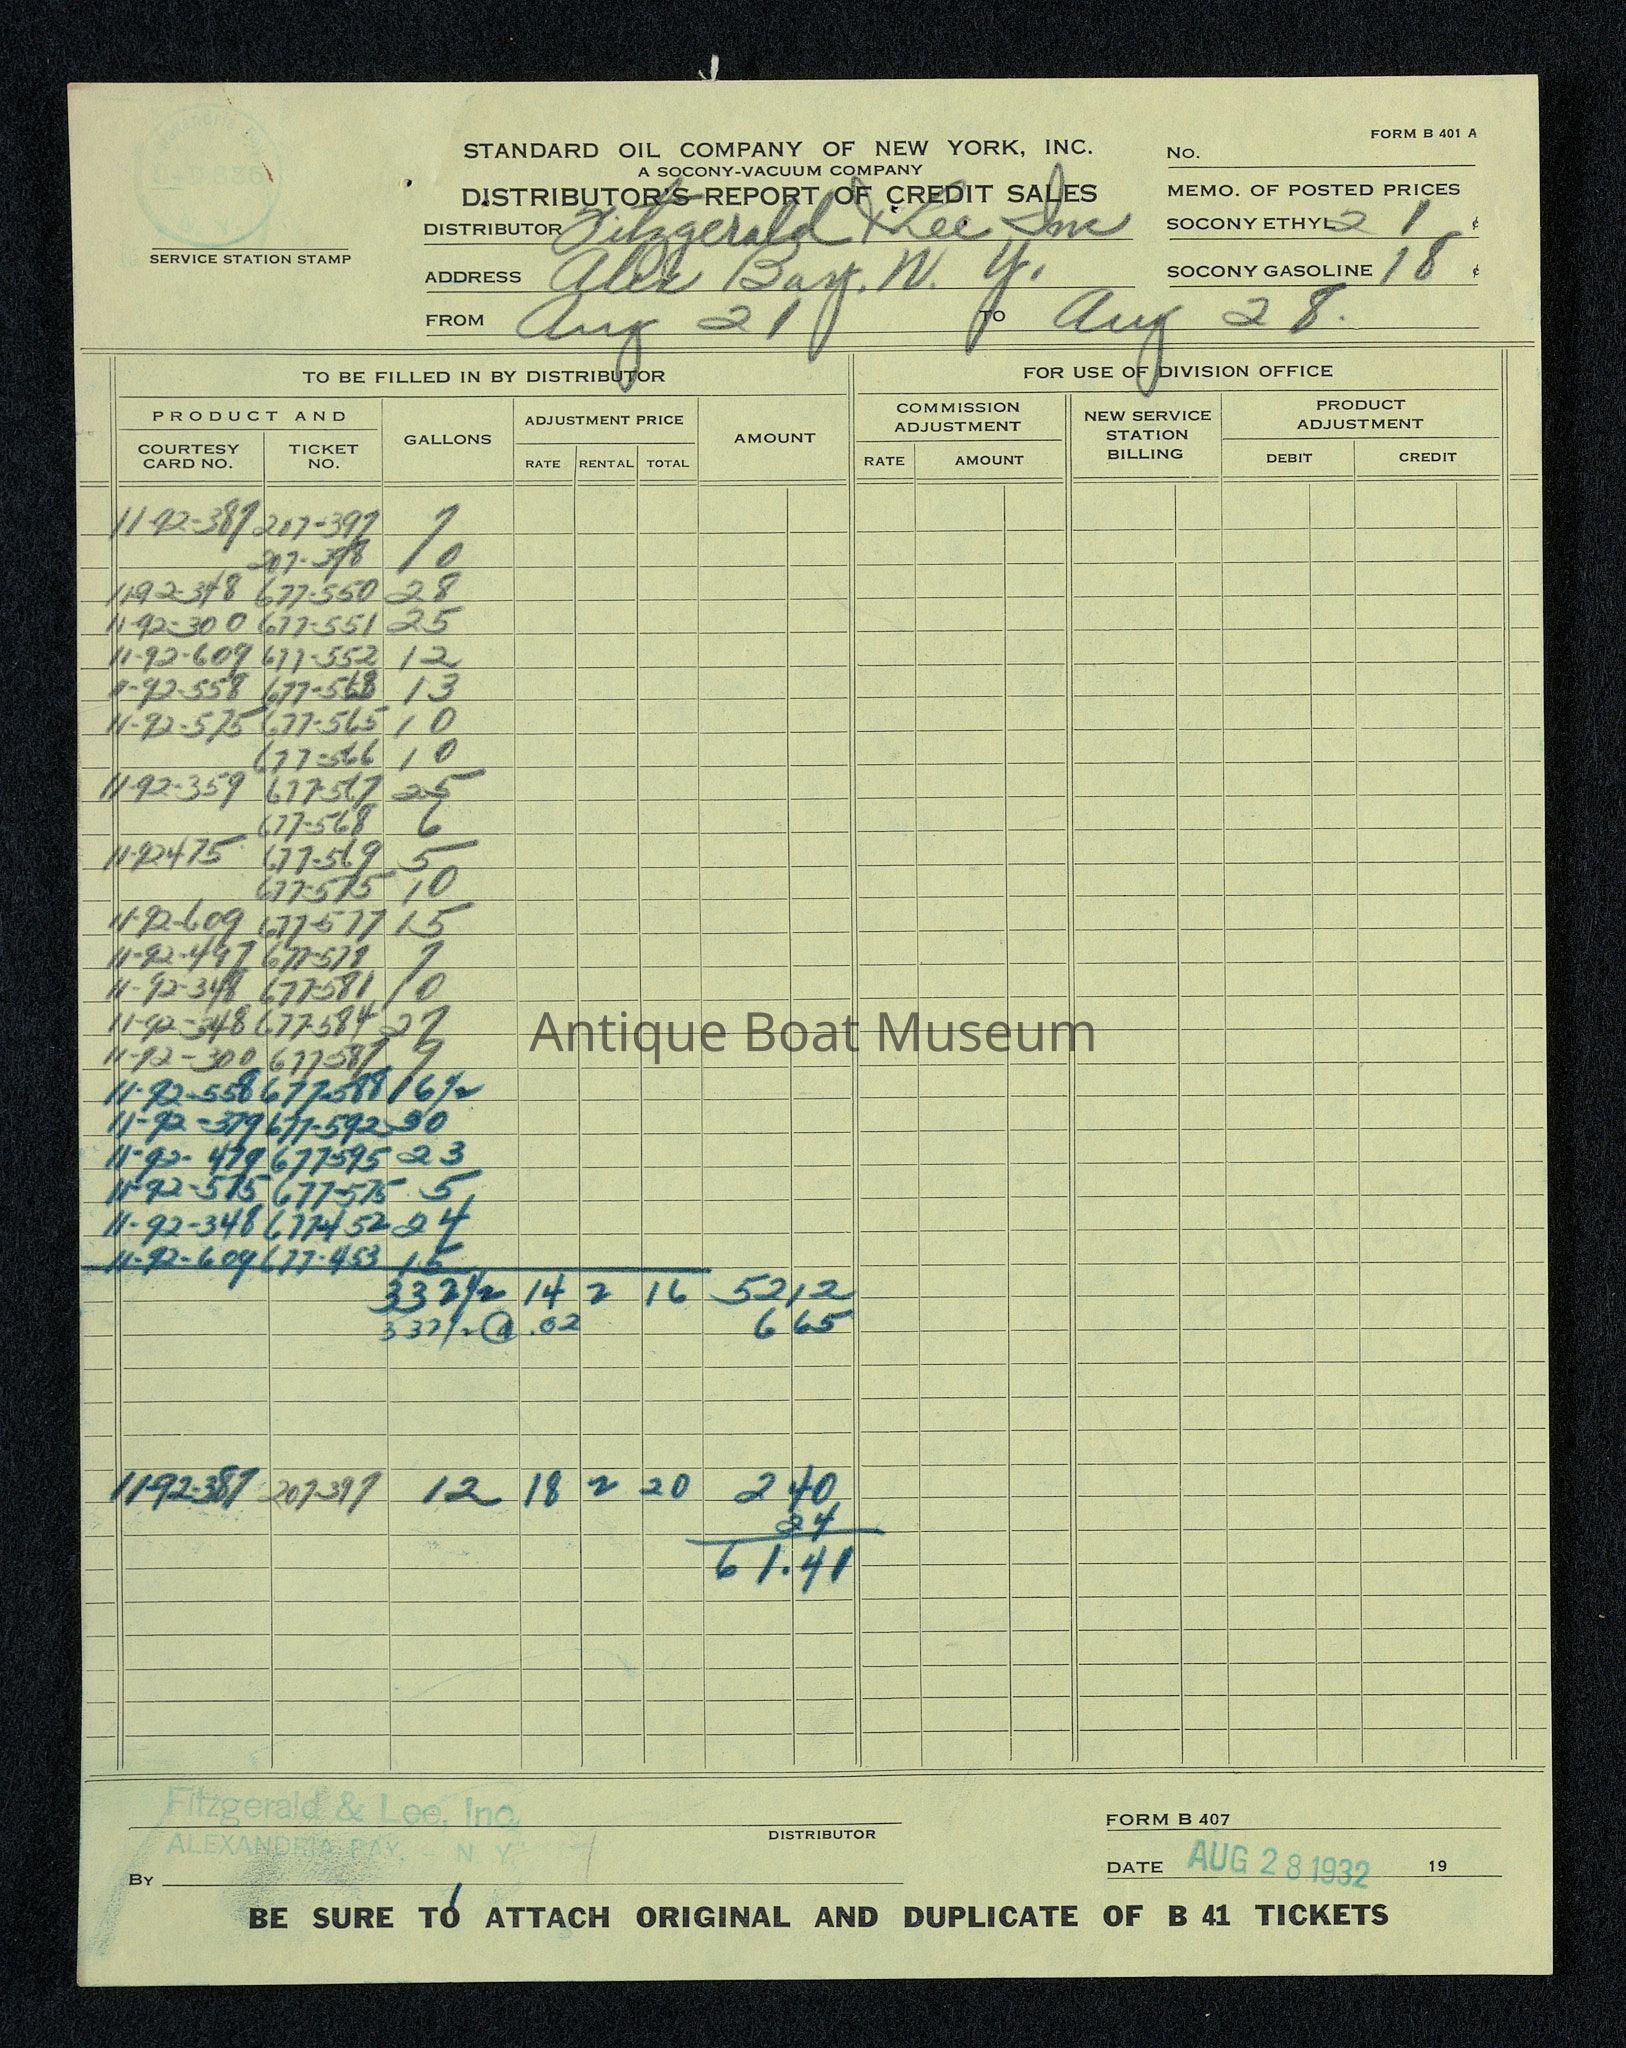 FORM B 401 A
STANDARD OIL COMPANY OF NEW YORK, INC.
A SOCONY-VACUUM COMPANY
DISTRIBUTOR'S REPORT OF CREDIT SALES
No.
MEMO. OF POSTED PRICES
DISTRIBUTOR Fitzgerald & Lee Inc
SOCONY ETHYL 21 ¢
SERVICE STATION STAMP
ADDRESS Alex Bay, N. Y.
SOCONY GASOLINE 18 ¢
FROM Aug 21 TO Aug 28.
TO BE FILLED IN BY DISTRIBUTOR FOR USE OF DIVISION OFFICE
PRODUCT AND
COURTESY CARD NO. TICKET NO. GALLONS ADJUSTMENT PRICE RATE RENTAL TOTAL AMOUNT COMMISSION ADJUSTMENT RATE AMOUNT NEW SERVICE STATION BILLING PRODUCT ADJUSTMENT DEBIT CREDIT
11-92-387 207-397 7
207-398 10
1192-348 677-550 28
11-92-300 677-551 25
11-92-609 677-552 12
11-92-558 677-568 13
11-92-575 677-565 10
677-566 10
11-92-359 677-567 25
677-568 6
11-92475 677-569 5
677-575 10
11-92-609 677-577 15
11-92-497 677-579 7
11-92-348 677-581 10
11-92-348 677-584 27
11-92-300 677-587 9
11-92-558 677-588 16½
11-92-379 677-592 30
11-92-479 677-595 23
11-92-575 677-575 5
11-92-348 677-452 24
11-92-609 677-453 15
332½ 14 2 16 52,12
332½ @ .02 6 65
1192-387 207-397 12 18 2 20 2 40
24
61.41
Antique Boat Museum
Fitzgerald & Lee, Inc.
ALEXANDRIA BAY, N. Y.
DISTRIBUTOR
FORM B 407
By
DATE AUG 28 1932 19
BE SURE TO ATTACH ORIGINAL AND DUPLICATE OF B 41 TICKETS